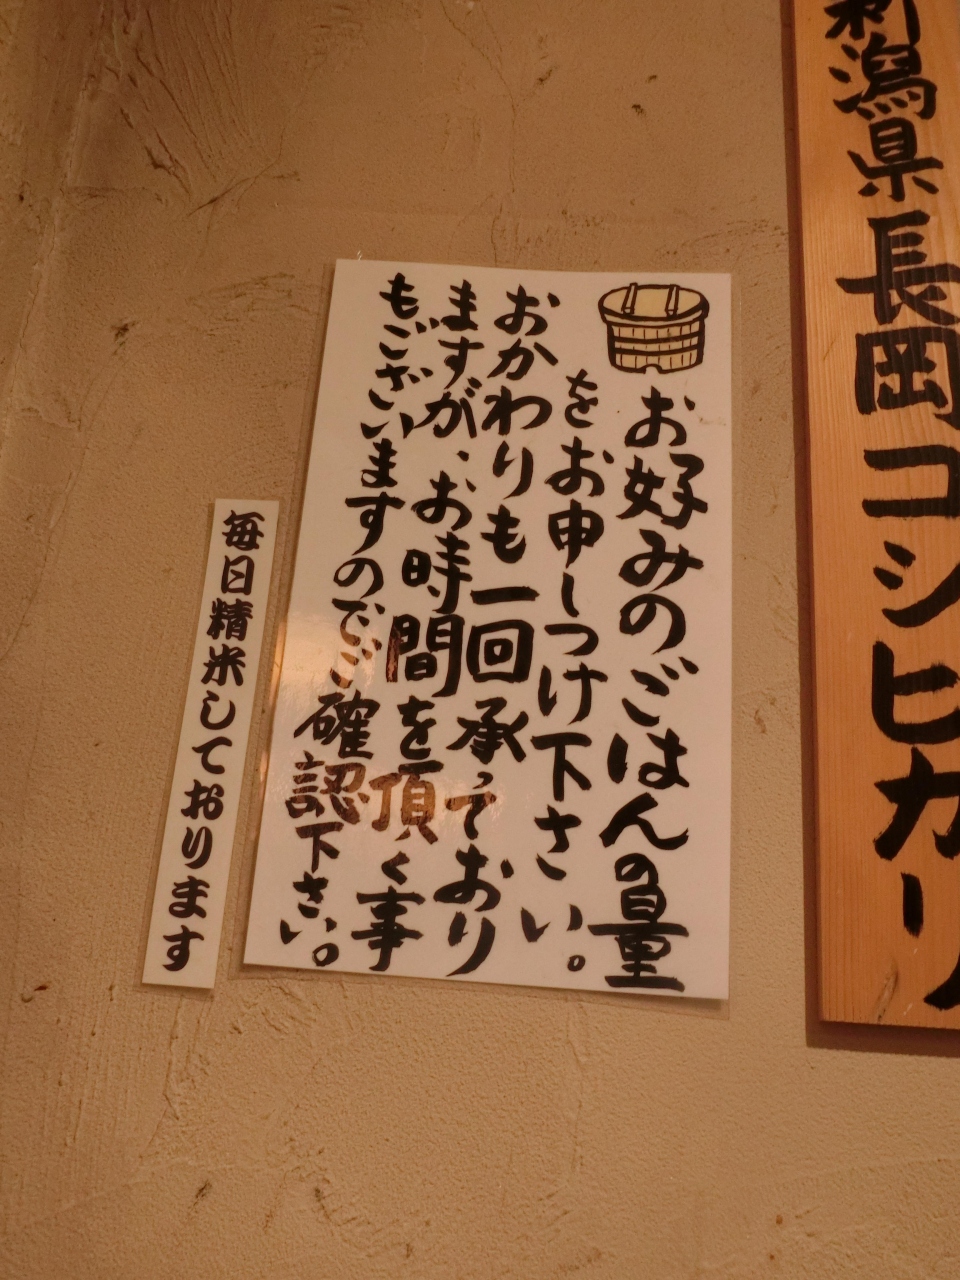 新潟県長岡コシヒカリ
お好みのごはんの量
をお申しつけ下さい。
おかわりも一回承っており
ますが、お時間を頂く事
もございますのでご確認下さい。
毎日精米しております